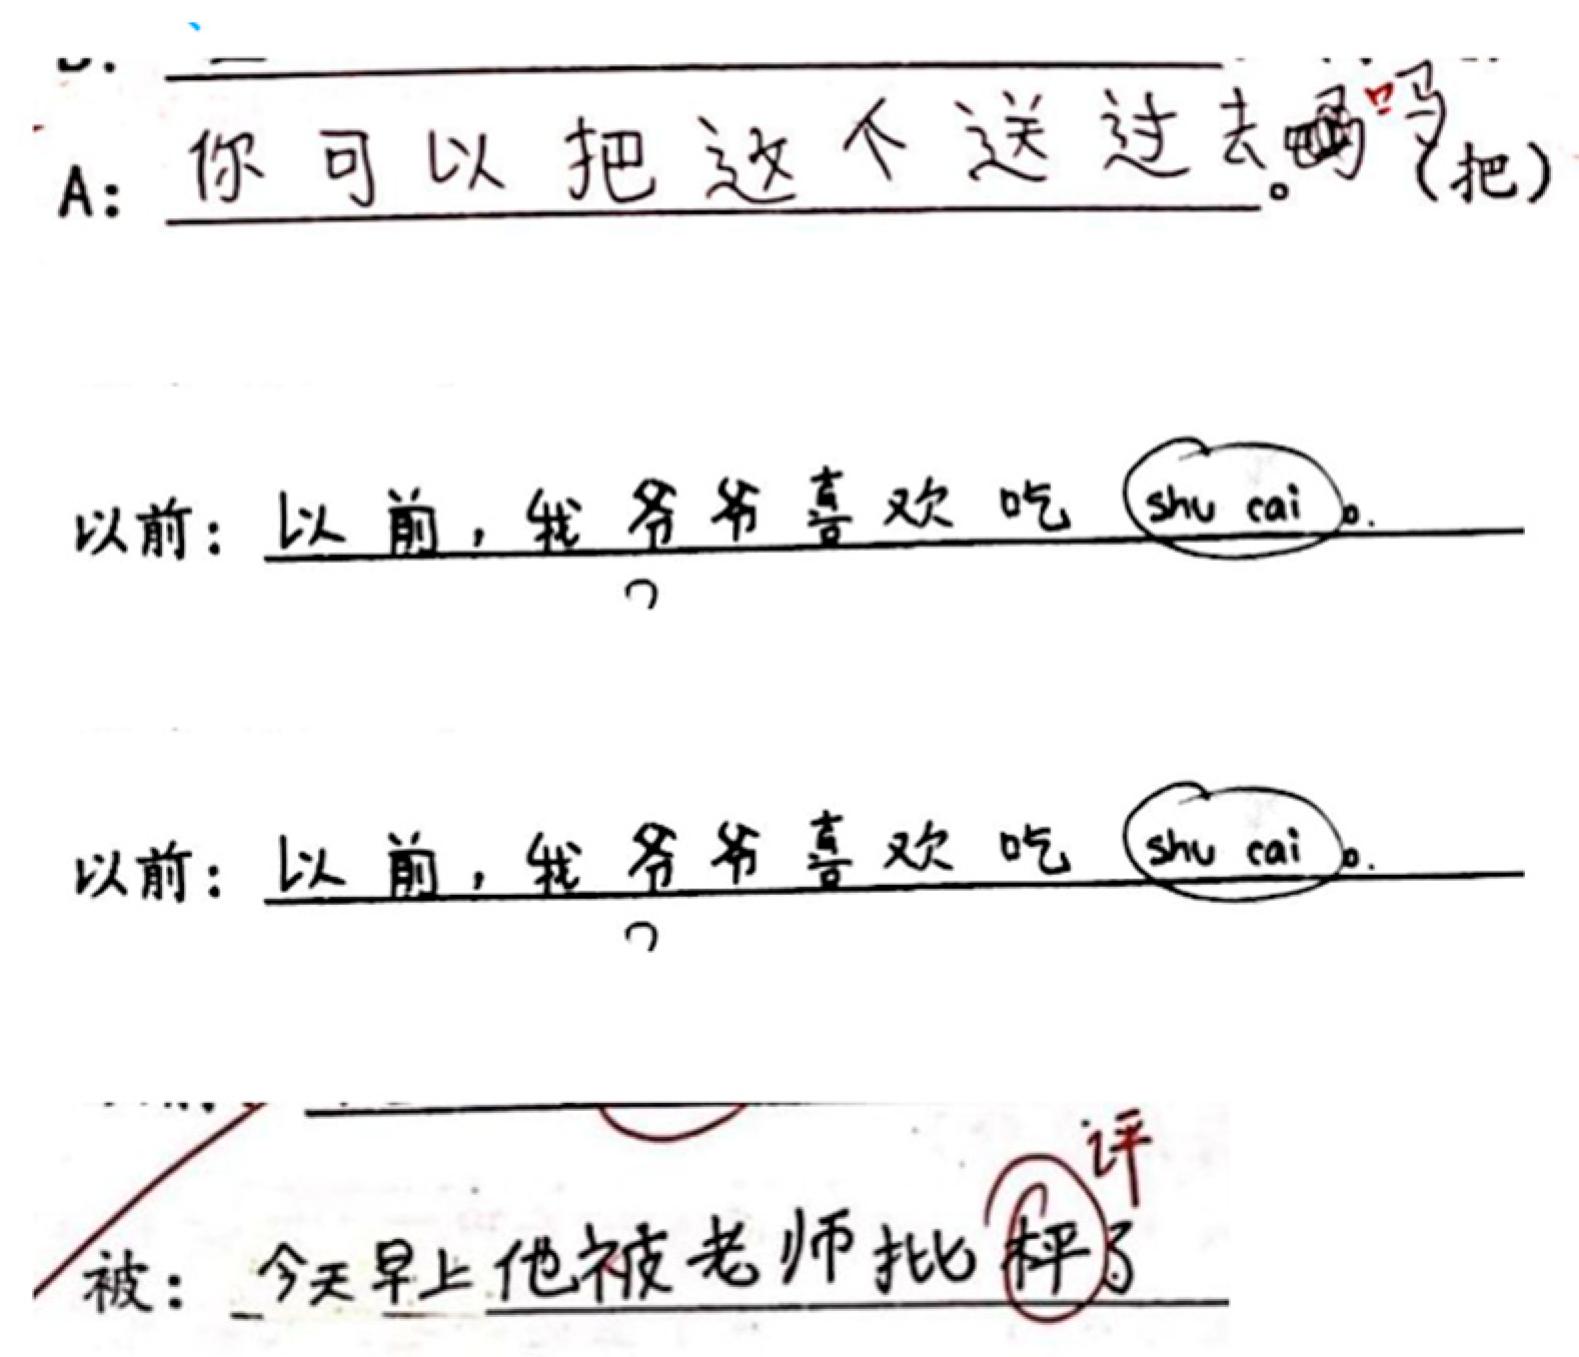 A: 你可以把这个送过去吗。(把)
以前: 以前，我爷爷喜欢吃 shu cai。
以前: 以前，我爷爷喜欢吃 shu cai。
评
被: 今天早上他被老师批秤了